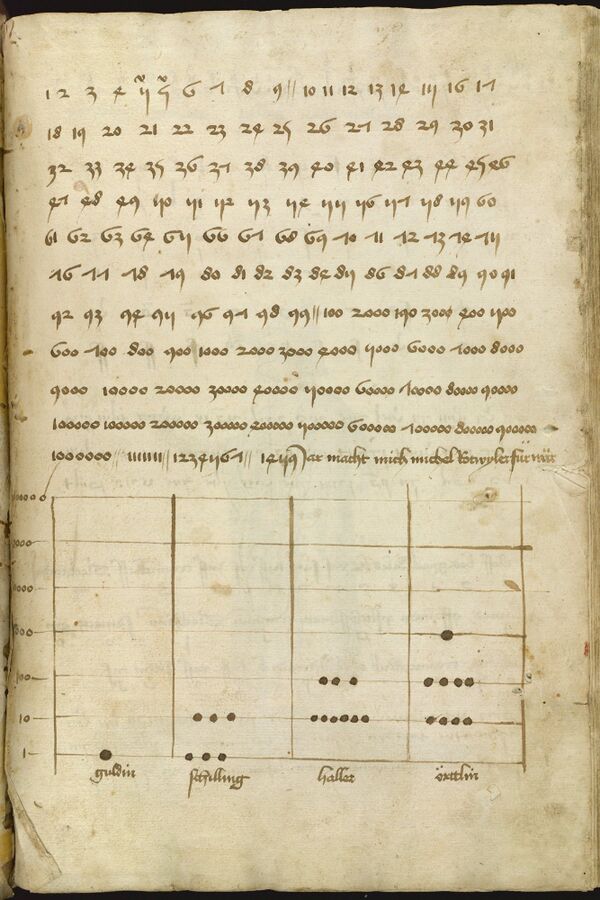 1 2 3 4 5 5 6 7 8 9 // 10 11 12 13 14 15 16 17
18 19 20 21 22 23 24 25 26 27 28 29 30 31
32 33 34 35 36 37 38 39 40 41 42 43 44 45 46
47 48 49 50 51 52 53 54 55 56 57 58 59 60
61 62 63 64 65 66 67 68 69 70 71 72 73 74 75
76 77 78 79 80 81 82 83 84 85 86 87 88 89 90 91
92 93 94 95 96 97 98 99 // 100 2000 190 3000 400 500
600 700 800 900 1000 2000 3000 4000 5000 6000 7000 8000
9000 10000 20000 30000 40000 50000 60000 70000 80000 90000
100000 100000 200000 300000 400000 500000 600000 700000 800000 900000
1000000 // 1111111 // 1234567 // 1455 Jar macht mich michel für war
100
10
1
guldin schilling haller örttlin